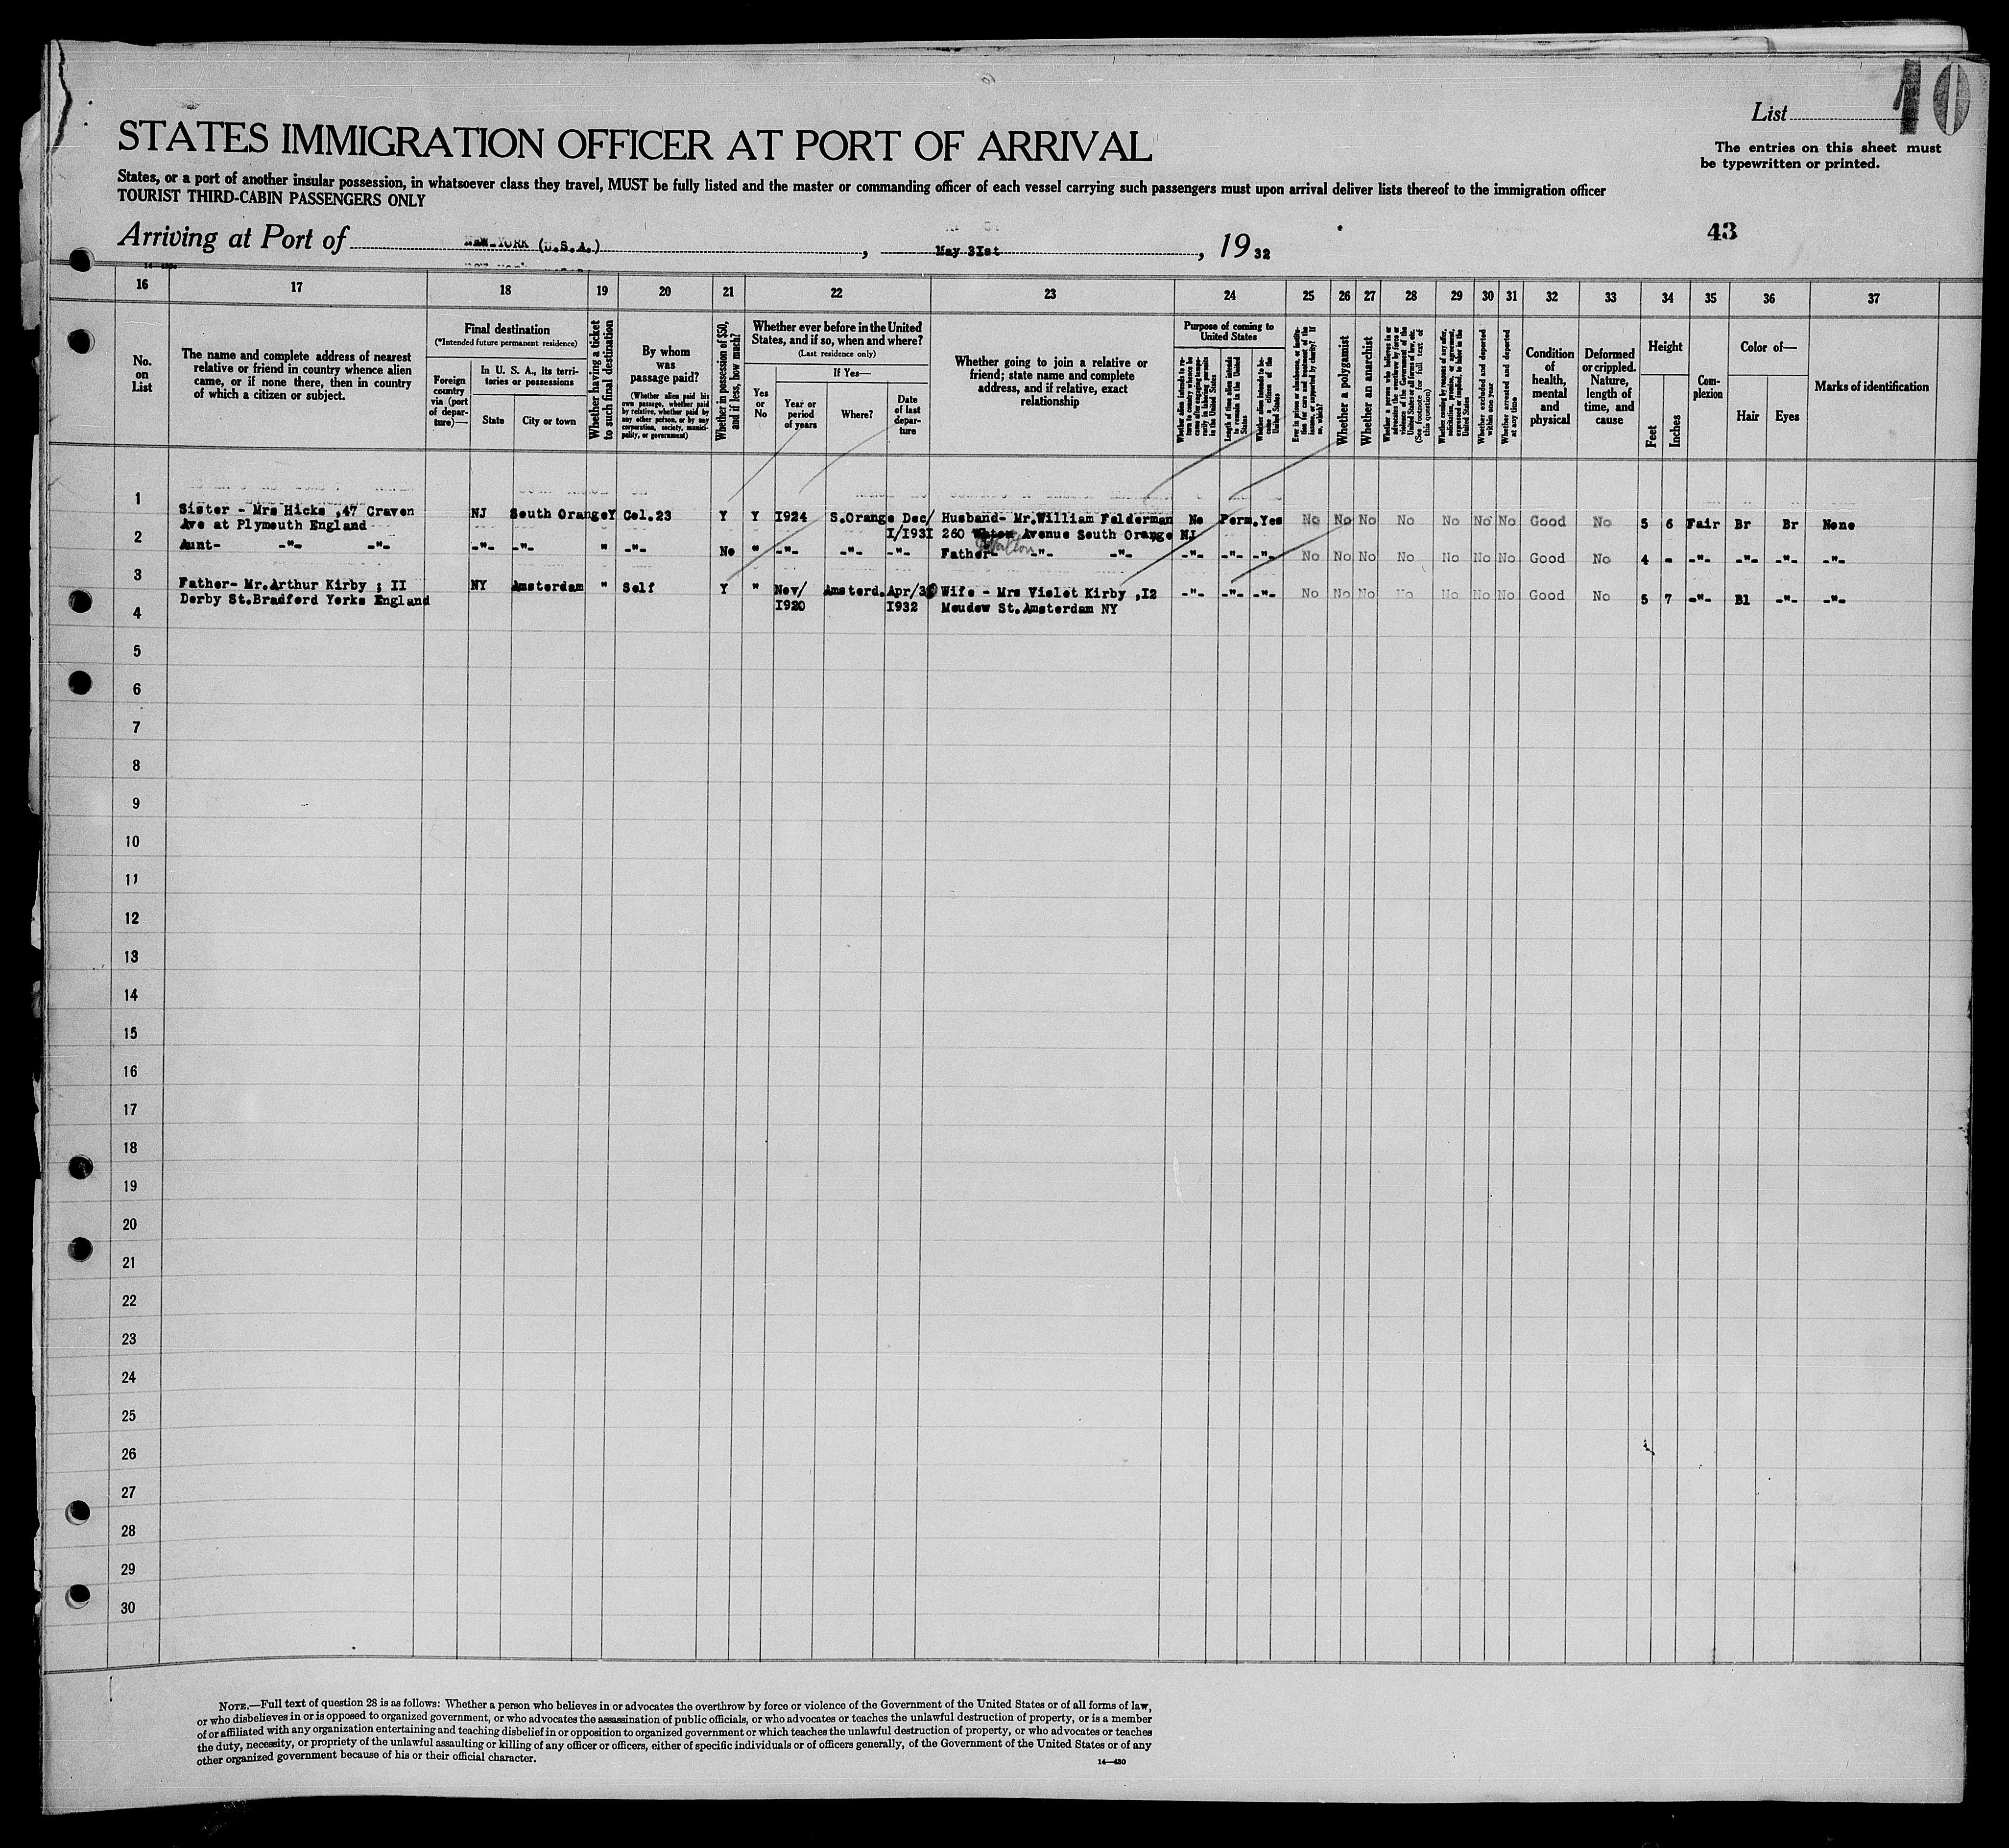 List 10
STATES IMMIGRATION OFFICER AT PORT OF ARRIVAL
The entries on this sheet must
be typewritten or printed.
States, or a port of another insular possession, in whatsoever class they travel, MUST be fully listed and the master or commanding officer of each vessel carrying such passengers must upon arrival deliver lists thereof to the immigration officer
TOURIST THIRD-CABIN PASSENGERS ONLY
Arriving at Port of NEW-YORK (U.S.A.), May 3Ist, 1932
43
16 17 18 19 20 21 22 23 24 25 26 27 28 29 30 31 32 33 34 35 36 37
No.
on
List
The name and complete address of nearest
relative or friend in country whence alien
came, or if none there, then in country
of which a citizen or subject.
Final destination
(*Intended future permanent residence)
Foreign
country
via (port
of depar-
ture)—
In U. S. A., its terri-
tories or possessions
State
City or town
Whether having a ticket
to such final destination
By whom
was
passage paid?
(Whether alien paid his
own passage, whether paid
by relative, whether paid by
any other person, or by any
corporation, society, munici-
pality, or government)
Whether in possession of $50,
and if less, how much?
Whether ever before in the United
States, and if so, when and where?
(Last residence only)
Yes
or
No
If Yes—
Year or
period
of years
Where?
Date
of last
depar-
ture
Whether going to join a relative or
friend; state name and complete
address, and if relative, exact
relationship
Purpose of coming to
United States
Whether alien intends to re-
turn to country whence he
came after engaging tempo-
rarily in laboring pursuits
in the United States
Length of time alien intends
to remain in the United
States
Whether alien intends to be-
come a citizen of the
United States
Ever in prison or almshouse, or institu-
tion for care and treatment of the
insane, or supported by charity? If
so, which?
Whether a polygamist
Whether an anarchist
Whether a person who believes in or
advocates the overthrow by force or
violence of the Government of the
United States or all forms of law, etc.
(See footnote for full text of
this question)
Whether coming by reason of any offer,
solicitation, promise, or agreement,
expressed or implied, to labor in the
United States
Whether excluded and deported
within one year
Whether arrested and deported
at any time
Condition
of
health,
mental
and
physical
Deformed
or crippled.
Nature,
length of
time, and
cause
Height
Feet
Inches
Com-
plexion
Color of—
Hair
Eyes
Marks of identification
1
Sister - Mrs Hicks ,47 Craven NJ South Orange Y Cel.23 Y Y I924 S.Orange Dec/ Husband- Mr.William Felderman No Perm. Yes No No No No No No No Good No 5 6 Fair Br Br None
Ave at Plymouth England I/I93I 260 Avenue South Orange NJ
Walton
2
Aunt- -"- -"- -"- -"- " -"- No " -"- -"- -"- Father- -"- -"- -"- -"- -"- No No No No No No No Good No 4 - -"- -"- -"- -"-
3
Father- Mr.Arthur Kirby ; II NY Amsterdam " Self Y " Nov/ Amsterd. Apr/30 Wife - Mrs Violet Kirby ,I2 -"- -"- -"- No No No No No No No Good No 5 7 -"- Bl -"- -"-
Derby St.Bradford Yorks England I920 I932 Meudow St.Amsterdam NY
4
5
6
7
8
9
10
11
12
13
14
15
16
17
18
19
20
21
22
23
24
25
26
27
28
29
30
NOTE.—Full text of question 28 is as follows: Whether a person who believes in or advocates the overthrow by force or violence of the Government of the United States or of all forms of law,
or who disbelieves in or is opposed to organized government, or who advocates the assassination of public officials, or who advocates or teaches the unlawful destruction of property, or is a member
of or affiliated with any organization entertaining and teaching disbelief in or opposition to organized government or which teaches the unlawful destruction of property, or who advocates or teaches
the duty, necessity, or propriety of the unlawful assaulting or killing of any officer or officers, either of specific individuals or of officers generally, of the Government of the United States or of any
other organized government because of his or their official character.
14—430